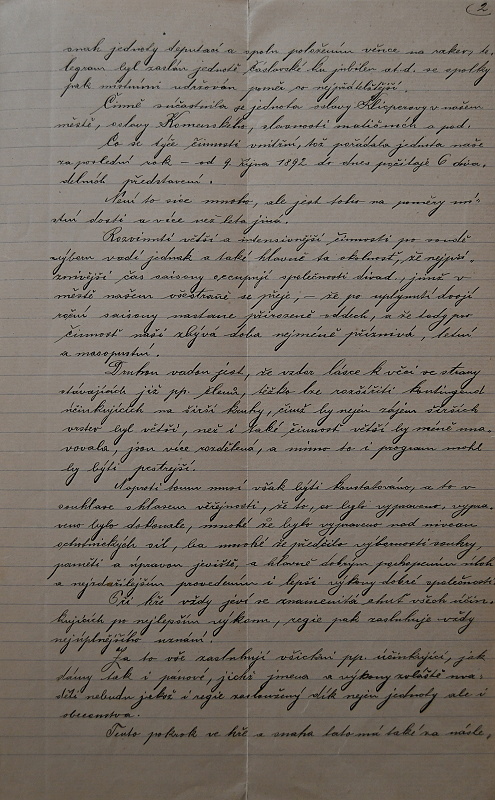 2
onak jednoty deputací a spolu položením věnce na rakev, te,
legram byl zaslán jednotě Čáslavské ku jubileu atd. se spolky
pak místními udržován poměr co nejpřátelštější.
Činně súčastnila se jednota oslavy Klicperovy v našem
městě, oslavy Komenského, slavností matičních a pod.
Co se týče činnosti vnitřní, tož pořádala jednota naše
za poslední rok – od 9. října 1892 do dnes počítaje 6 diva,
delních představení.
Není to sice mnoho, ale jest toho na poměry mí,
stní dosti a více než léta jiná.
Rozvinutí větší a intensivnější činnosti po
vadí jednak a také hlavně ta okolnost, že nejpří,
znivější čas saisony occupují společnosti divad., jimž v
městě našem všestraně se přeje, – že po uplynutí dvojí
saisony nastane přirozeně oddech, a že tudy pro
činnost naší zbývá doba nejméně příznivá, letní
a masopustní.
Druhou vadou jest, že vzdor lásce k věci se strany
stávajících již pp. členů, těžko lze rozšířiti kontingent
účinkujících na širší kruhy, čímž by nejen zájem širších
vrstev byl větší, než i také činnost větší by méně una,
vovala, jsouc více rozdělená, a mimo to i program mohl
by býti pestrejší.
Naproti tomu musí však býti konstatováno, a to v
souhlase s hlasem veřejnosti, že to, co bylo vypraveno, vypra,
veno bylo dokonale, mnohé že bylo vypraveno nad niveau
ochotnických sil, ba mnohé že předčilo výborností souhry,
pamětí a úpravou jeviště, a hlavně dobrým pochopením úloh
a nejzdařilejším provedením i lepší výkony dobré společnosti.
Při hře vždy jeví se znamenitá všech účin,
kujících po nejlepším výkonu, regie pak zasluhuje vždy
nejúplnějšího uznání.
Za to vše zasluhují všickni pp. účinkující, jak
dámy tak i panové, jichž jména a výkony zvláště uvá,
děti nebudu jakož i regie zasloužený dík nejen jednoty ale i
obecenstva.
Tento pokrok ve hře a snaha tato má také za násle,